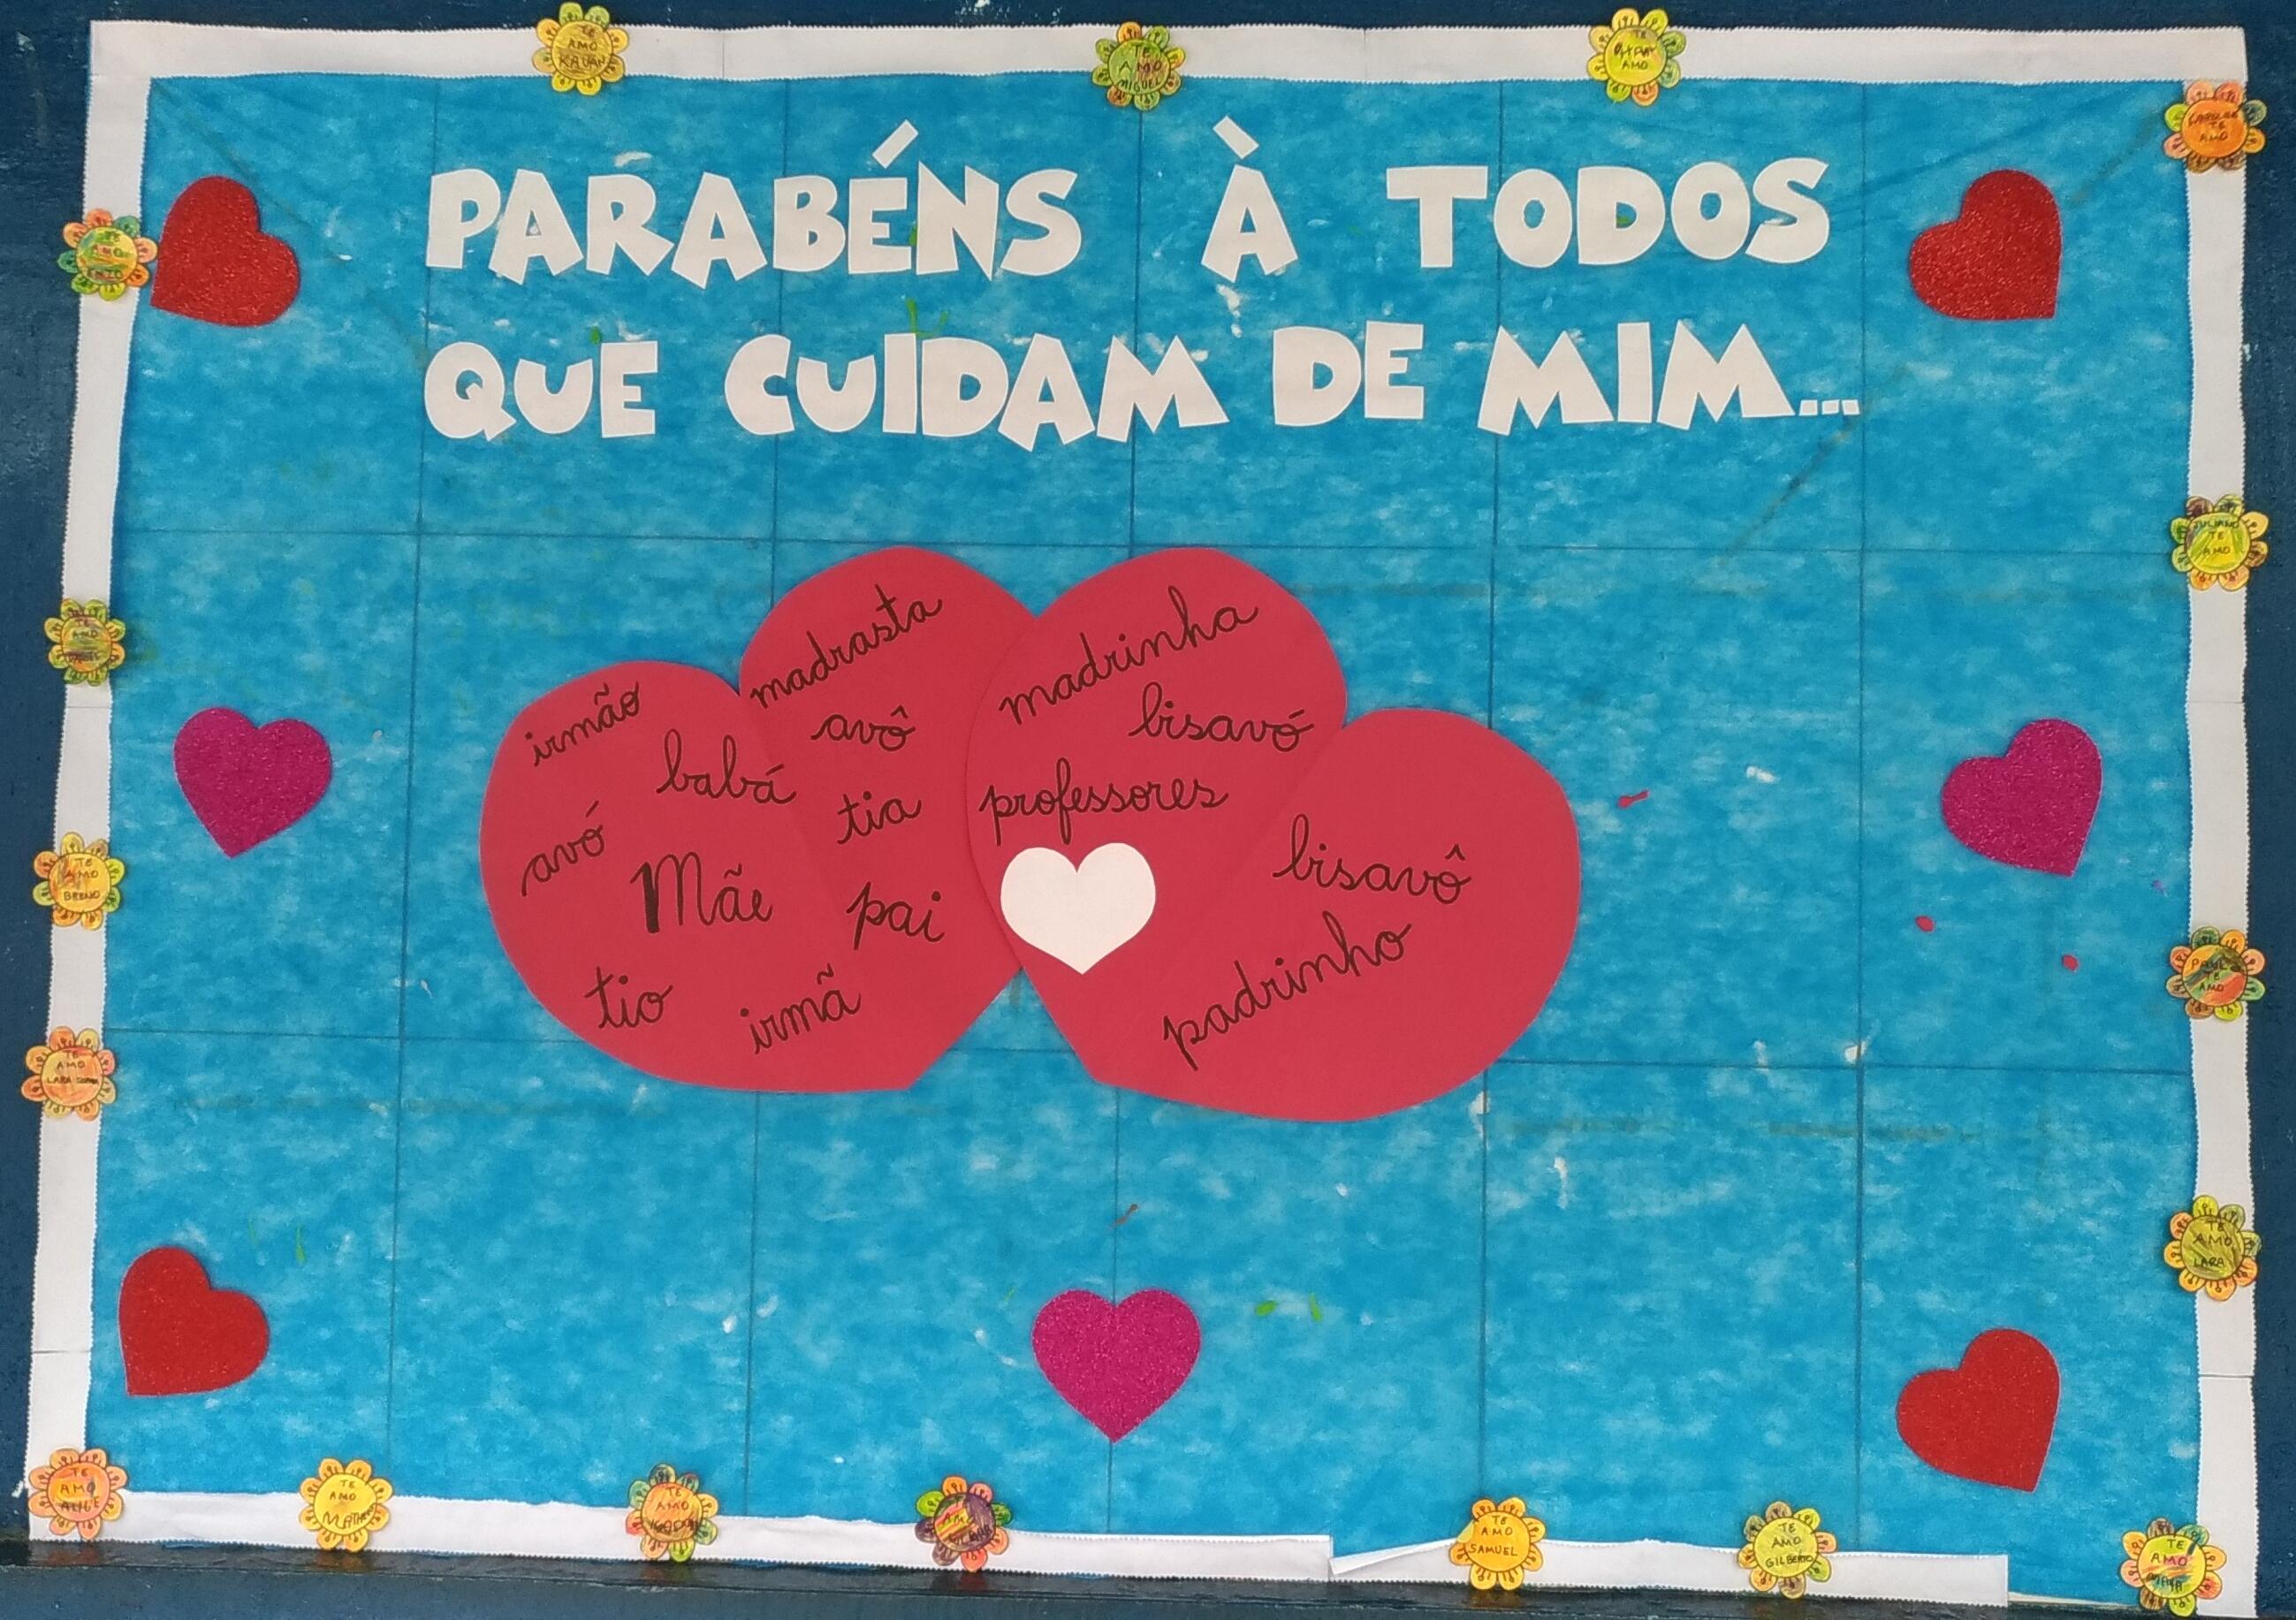 PARABÉNS À TODOS
QUE CUIDAM DE MIM...
irmão
babá
avó
Mãe
tio
irmã
madrasta
avô
tia
pai
madrinha
bisavó
professores
bisavô
padrinho
TE
AMO
KAUAN
TE
AMO
MIGUEL
AMO
TE
AMO
JULIANO
TE
AMO
TE
AMO
TE
AMO
LARA
TE
AMO
ENZO
TE
AMO
TE
AMO
BRENO
TE
AMO
LARA
TE
AMO
ALICE
TE
AMO
MATHEUS
TE
AMO
TE
AMO
SAMUEL
TE
AMO
GILBERTO
TE
AMO